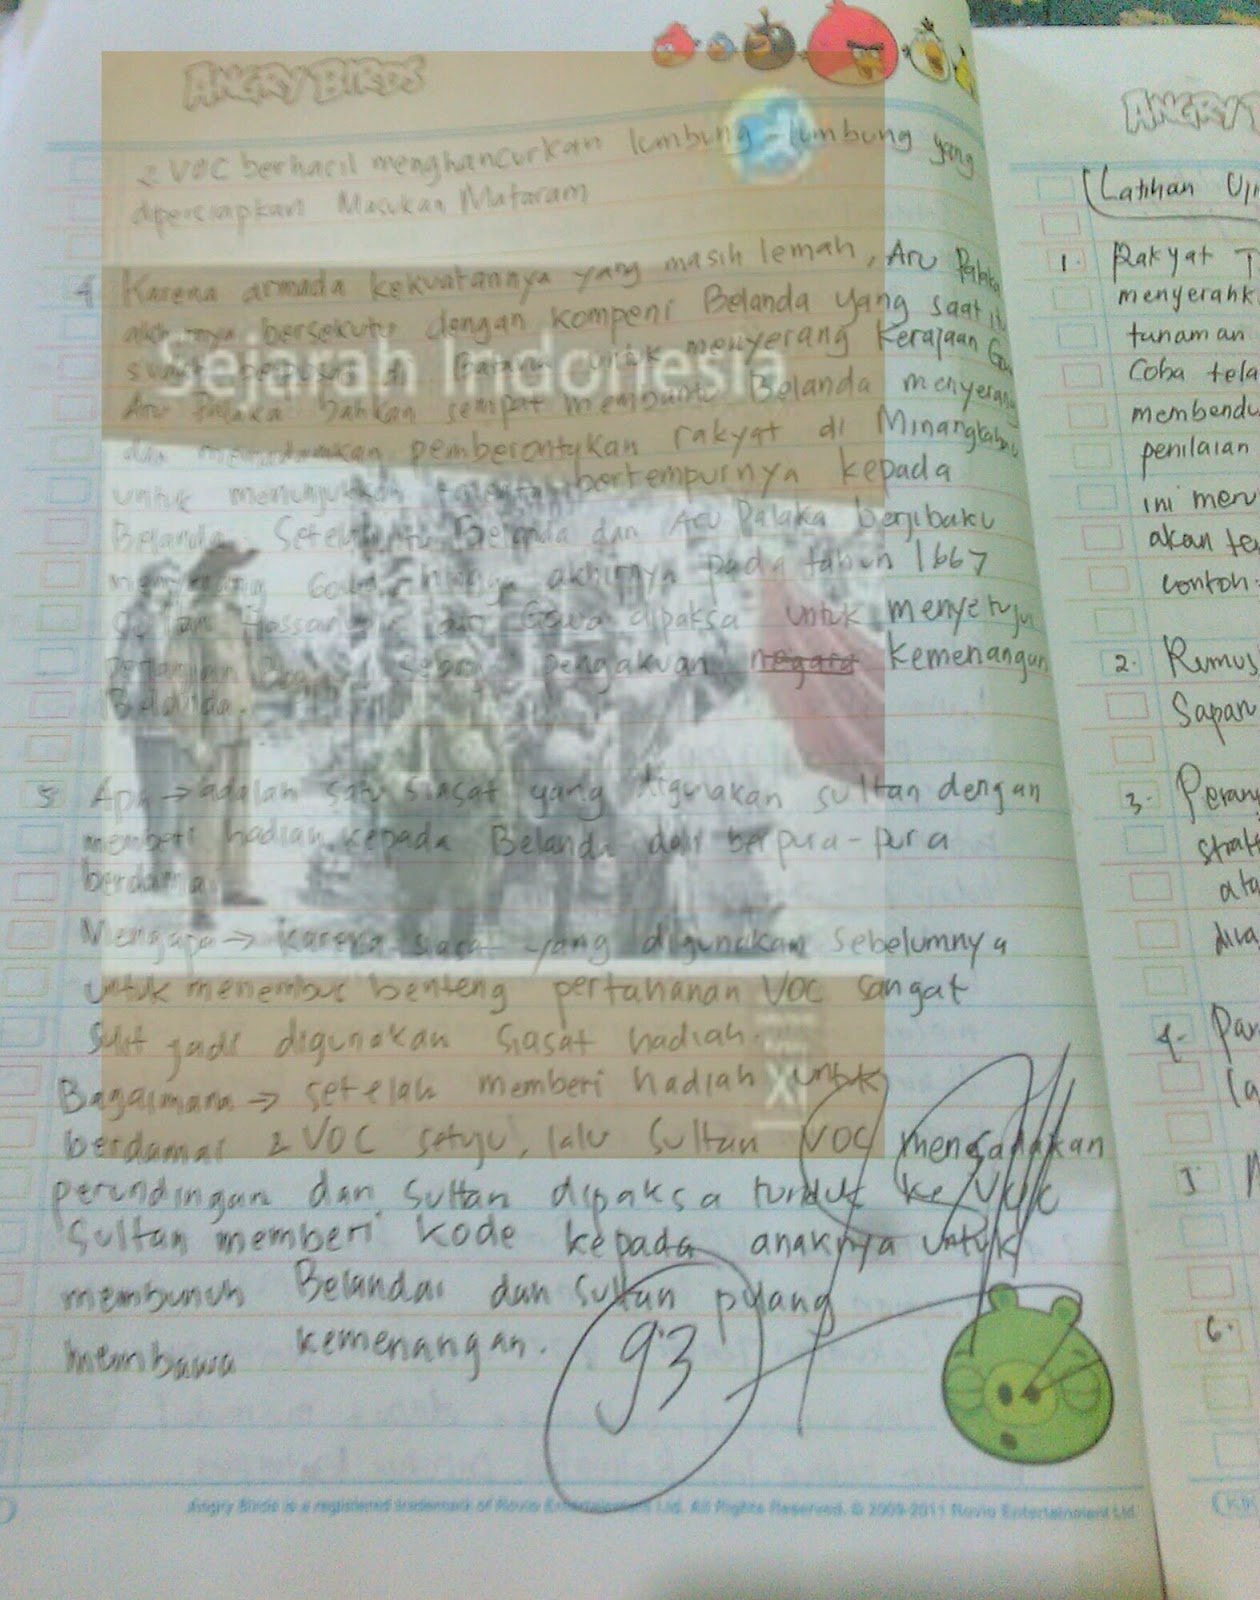 ANGRY BIRDS
2 VOC berhasil menghancurkan lumbung-lumbung yang
dipersiapkan Masukan Mataram
4 Karena armada kekuatannya yang masih lemah, Aru Palaka
akhirnya bersekutu dengan kompeni Belanda yang saat itu
sudah berpusat di Batavia untuk menyerang Kerajaan Gowa
Aru Palaka bahkan sempat membantu Belanda menyerang
dan memadamkan pemberontykan rakyat di Minangkabau
untuk menunjukkan bertempurnya kepada
Belanda. Setelah itu Belanda dan Aru Palaka berjibaku
menyerang Gowa hingga akhirnya pada tahun 1667
Sultan Hassanudin dari Gowa dipaksa untuk menyetujui
perjanjian sebagai pengakuan negara kemenangan
Belanda.
5 Apa → adalah satu siasat yang digunakan sultan dengan
memberi hadiah kepada Belanda dan berpura-pura
berdamai
Mengapa → karena siasat yang digunakan sebelumnya
untuk menembus benteng pertahanan VOC sangat
sulit jadi digunakan siasat hadiah.
Bagaimana → setelah memberi hadiah untuk
berdamai 2 VOC setuju, lalu sultan VOC mengadakan
perundingan dan sultan dipaksa tunduk ke VOC
Sultan memberi kode kepada anaknya untuk
membunuh Belandai dan sultan pulang
membawa kemenangan.
93
Sejarah Indonesia
XI
Angry Birds is a registered trademark of Rovio Entertainment Ltd. All Rights Reserved. © 2009-2011 Rovio Entertainment Ltd
Latihan
1. Rakyat
menyerahk
tanaman
Coba tela
membendu
penilaian
ini meru
akan te
contoh:
2. Rumus
Sapan
3. Perang
strat
ata
4.
5
6.